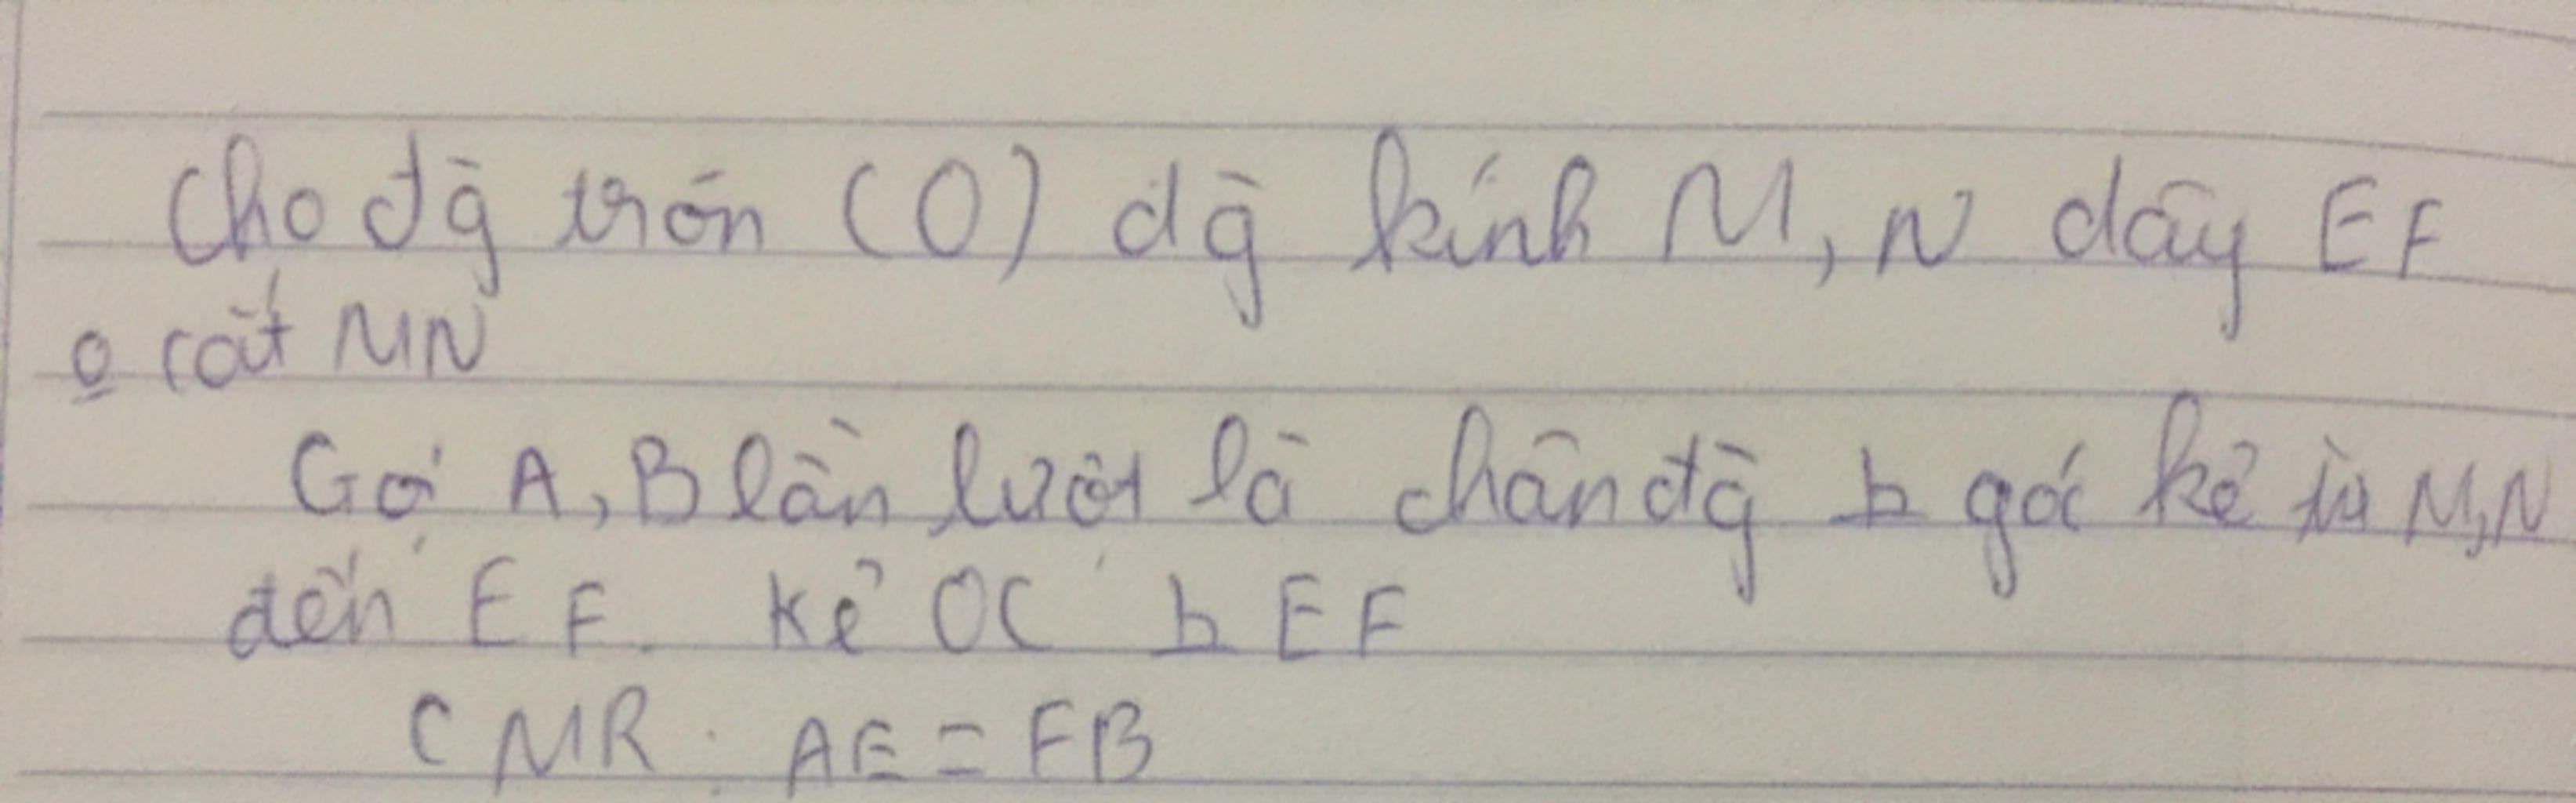 Cho đg̀ tròn (O) dg̀ kính M, N dây EF
o cắt MN
Gọi A, B lần lượt là chân đg̀ ⊥ góc kẻ từ M, N
đến EF. Kẻ OC ⊥ EF
CMR: AE = FB